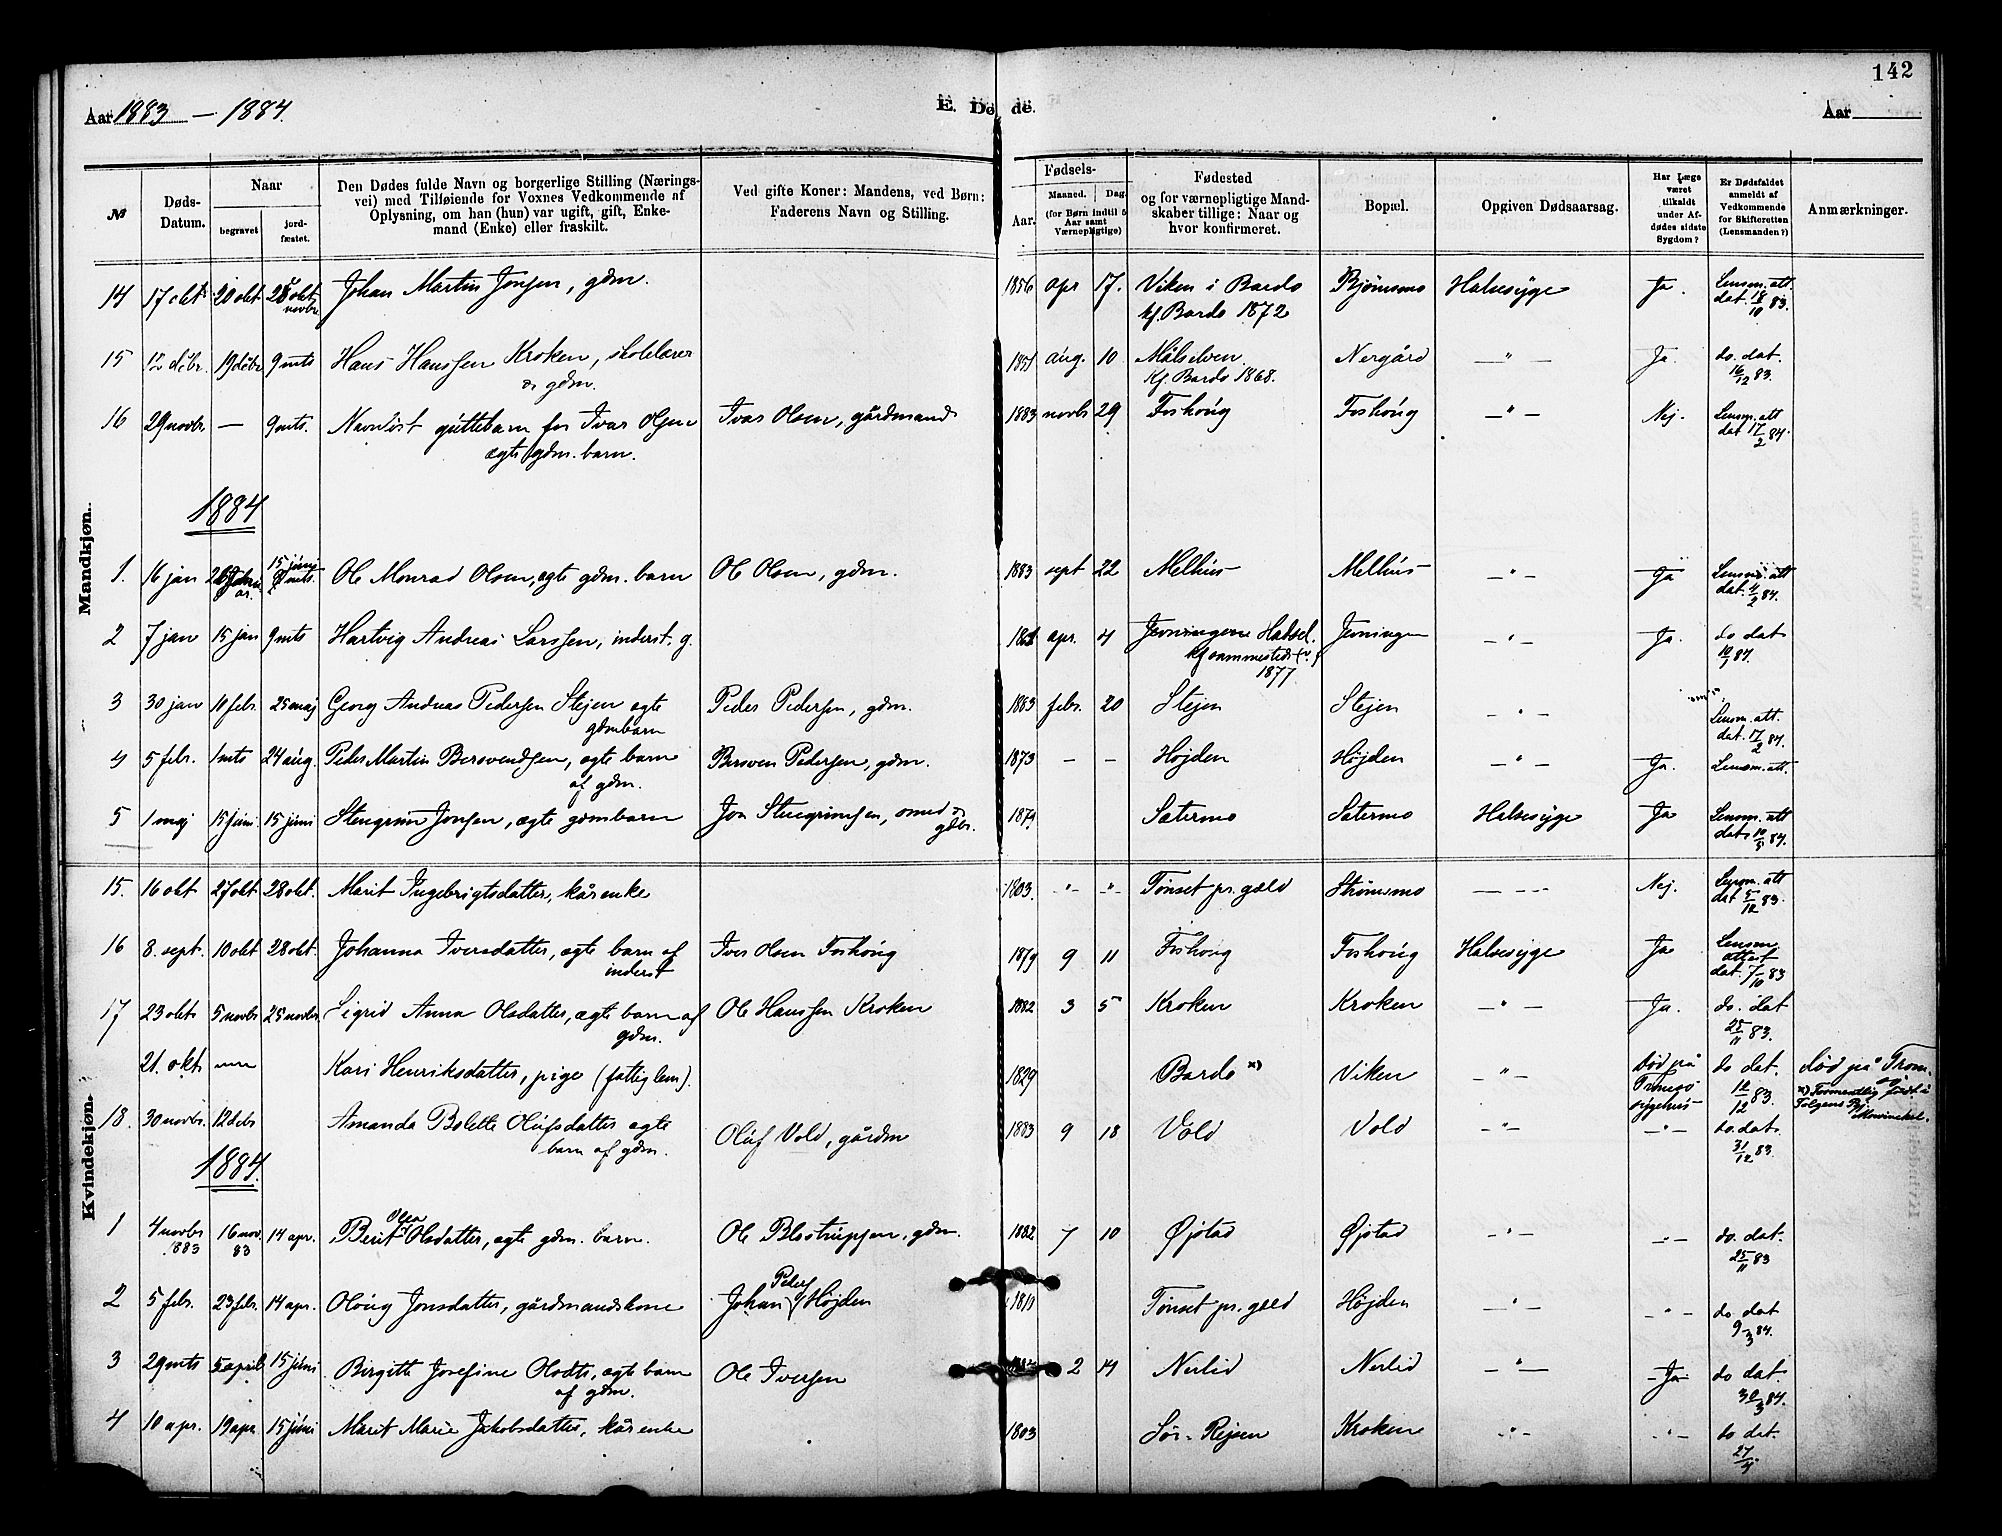 142
Aar 1883 – 1884.
E. Døde.
Aar
№
Døds-Datum.
Naar
begravet
jord-fæstet.
Den Dødes fulde Navn og borgerlige Stilling (Nærings-
vei) med Tilføiende for Voxnes Vedkommende af
Oplysning, om han (hun) var ugift, gift, Enke-
mand (Enke) eller fraskilt.
Ved gifte Koner: Mandens, ved Børn:
Faderens Navn og Stilling.
Fødsels-
Aar.
Maaned.
Dag.
(for Børn indtil 5
Aar samt
Værnepligtige)
Fødested
og for værnepligtige Mand-
skaber tillige: Naar og
hvor konfirmeret.
Bopæl.
Opgiven Dødsaarsag.
Har Læge
været
tilkaldt
under Af-
dødes sidste
Sygdom?
Er Dødsfaldet
anmeldt af
Vedkommende
for Skifteretten
(Lensmanden?)
Anmærkninger.
Mandkjøn.
14 17 okt. 20 okt Johan Martin Jonsen, gdm. 1856 apr 17. Viken i Bardo Bjørnsmo Halsesyge Ja. Lensm. att.
kf. Bardo 1872 dat. 18/10 83.
15 12 debr. 19 debr 9 mts Hans Hanssen Kroken, skolelærer aug. 10 Målselven Nergård —"— Ja do. dat.
& gdm. Kf. Bardo 1868. 16/12 83.
16 29 novbr. — 9 mts. Navnløst guttebarn for Ivar Olsen Ivar Olsen, gårdmand 1883 novbr 29 Foshoug Foshoug —"— Nej. Lensm. att
ægte gdm. barn. dat 17/2 84.
1884
1. 16 jan 15 juni Ole Monrad Olsen, ægte gdm. barn Ole Olsen, gdm. 1883 sept 22 Melhus Melhus —"— Ja Lensm. att
dat. 4/2 84.
2 7 jan 15 jan 9 mts Hartvig Andreas Larssen, inderst. g. apr. 4 Jenningen —"— Ja. do dat
1877
3 30 jan 10 febr. 25 maj Georg Andreas Pedersen Stejen ægte Peder Pedersen, gdm. 1883 febr. 20 Stejen Stejen —"— Lensm. att.
gdmbarn dat. 17/2 84.
4 5 febr. 1 mts 24 aug. Peder Martin Bersvendsen, ægte barn Bersven Pedersen, gdm. 1873 — — Højden Højden —"— Ja. Lensm. att.
af gdm.
5 1 maj 15 juni 15 juni Stengrim Jonsen, ægte gdmbarn Jon Stengrimsen, smed & 1879 Sætermo Sætermo Halsesyge Ja Lensm. att
gdbr. dat. 10/5 84.
Kvindekjøn.
15. 16 okt 27 okt 28 okt. Marit Ingebrigtsdatter, kårenke 1803. " " Tønset pr. gæld Strømsmo — — — Nej. Lensm. att
dat 5/12 83.
16 8. sept. 10 okt 28 okt. Johanna Iversdatter, ægte barn af Iver Olsen Foshoug 1879 9 11 Foshoug Foshoug Halsesyge Ja Lensm.
inderst attest
dat. 7/10 83
17 23 okt 5 novbr 25 novbr. Sigrid Anna Olsdatter, ægte barn af Ole Hanssen Kroken 1882 3 5 Kroken Kroken —"— Ja. do. dat
gdm. 25/11 83.
21. okt Kari Henriksdatter, pige (fattiglem). 1829 Bardo x) Viken —"— død på do dat. død på Trom-
Tromsø 12/12 83. x) Formentlig født i
sygehus Tolgens
18. 30 novbr. 12 debr Amanda Bolette Olufsdatter ægte Oluf Vold, gårdm 1883 9 18 Vold Vold —"— —"— do. dat.
barn af gdm. 31/12 83.
1884.
1 4 novbr 16 nov. 14 apr. Berit Olea Olsdatter, ægte gdm. barn. Ole gdm. 1882 7 10 Øjstad Øjstad —"— —"— do. dat.
1883 83 25/11 83
2 5 febr. 23 febr. 14 apr. Oloug Jonsdatter, gårdmandskone Johan Peders. Højden 1811 Tønset pr. gæld Højden —"— —"— do dat
9/3 84.
3 29 mts 5 april 15 juni Birgitte Josefine Olsdtr, ægte barn Ole Iversen 2 14 Nerlid Nerlid —"— Ja do dat.
af gdm. 30/3 84.
4 10 apr. 19 apr. 15 juni Marit Marie Jakobsdatter, kårenke 1803 Sør-Rejsen Kroken —"— —"— do dat.
27/4